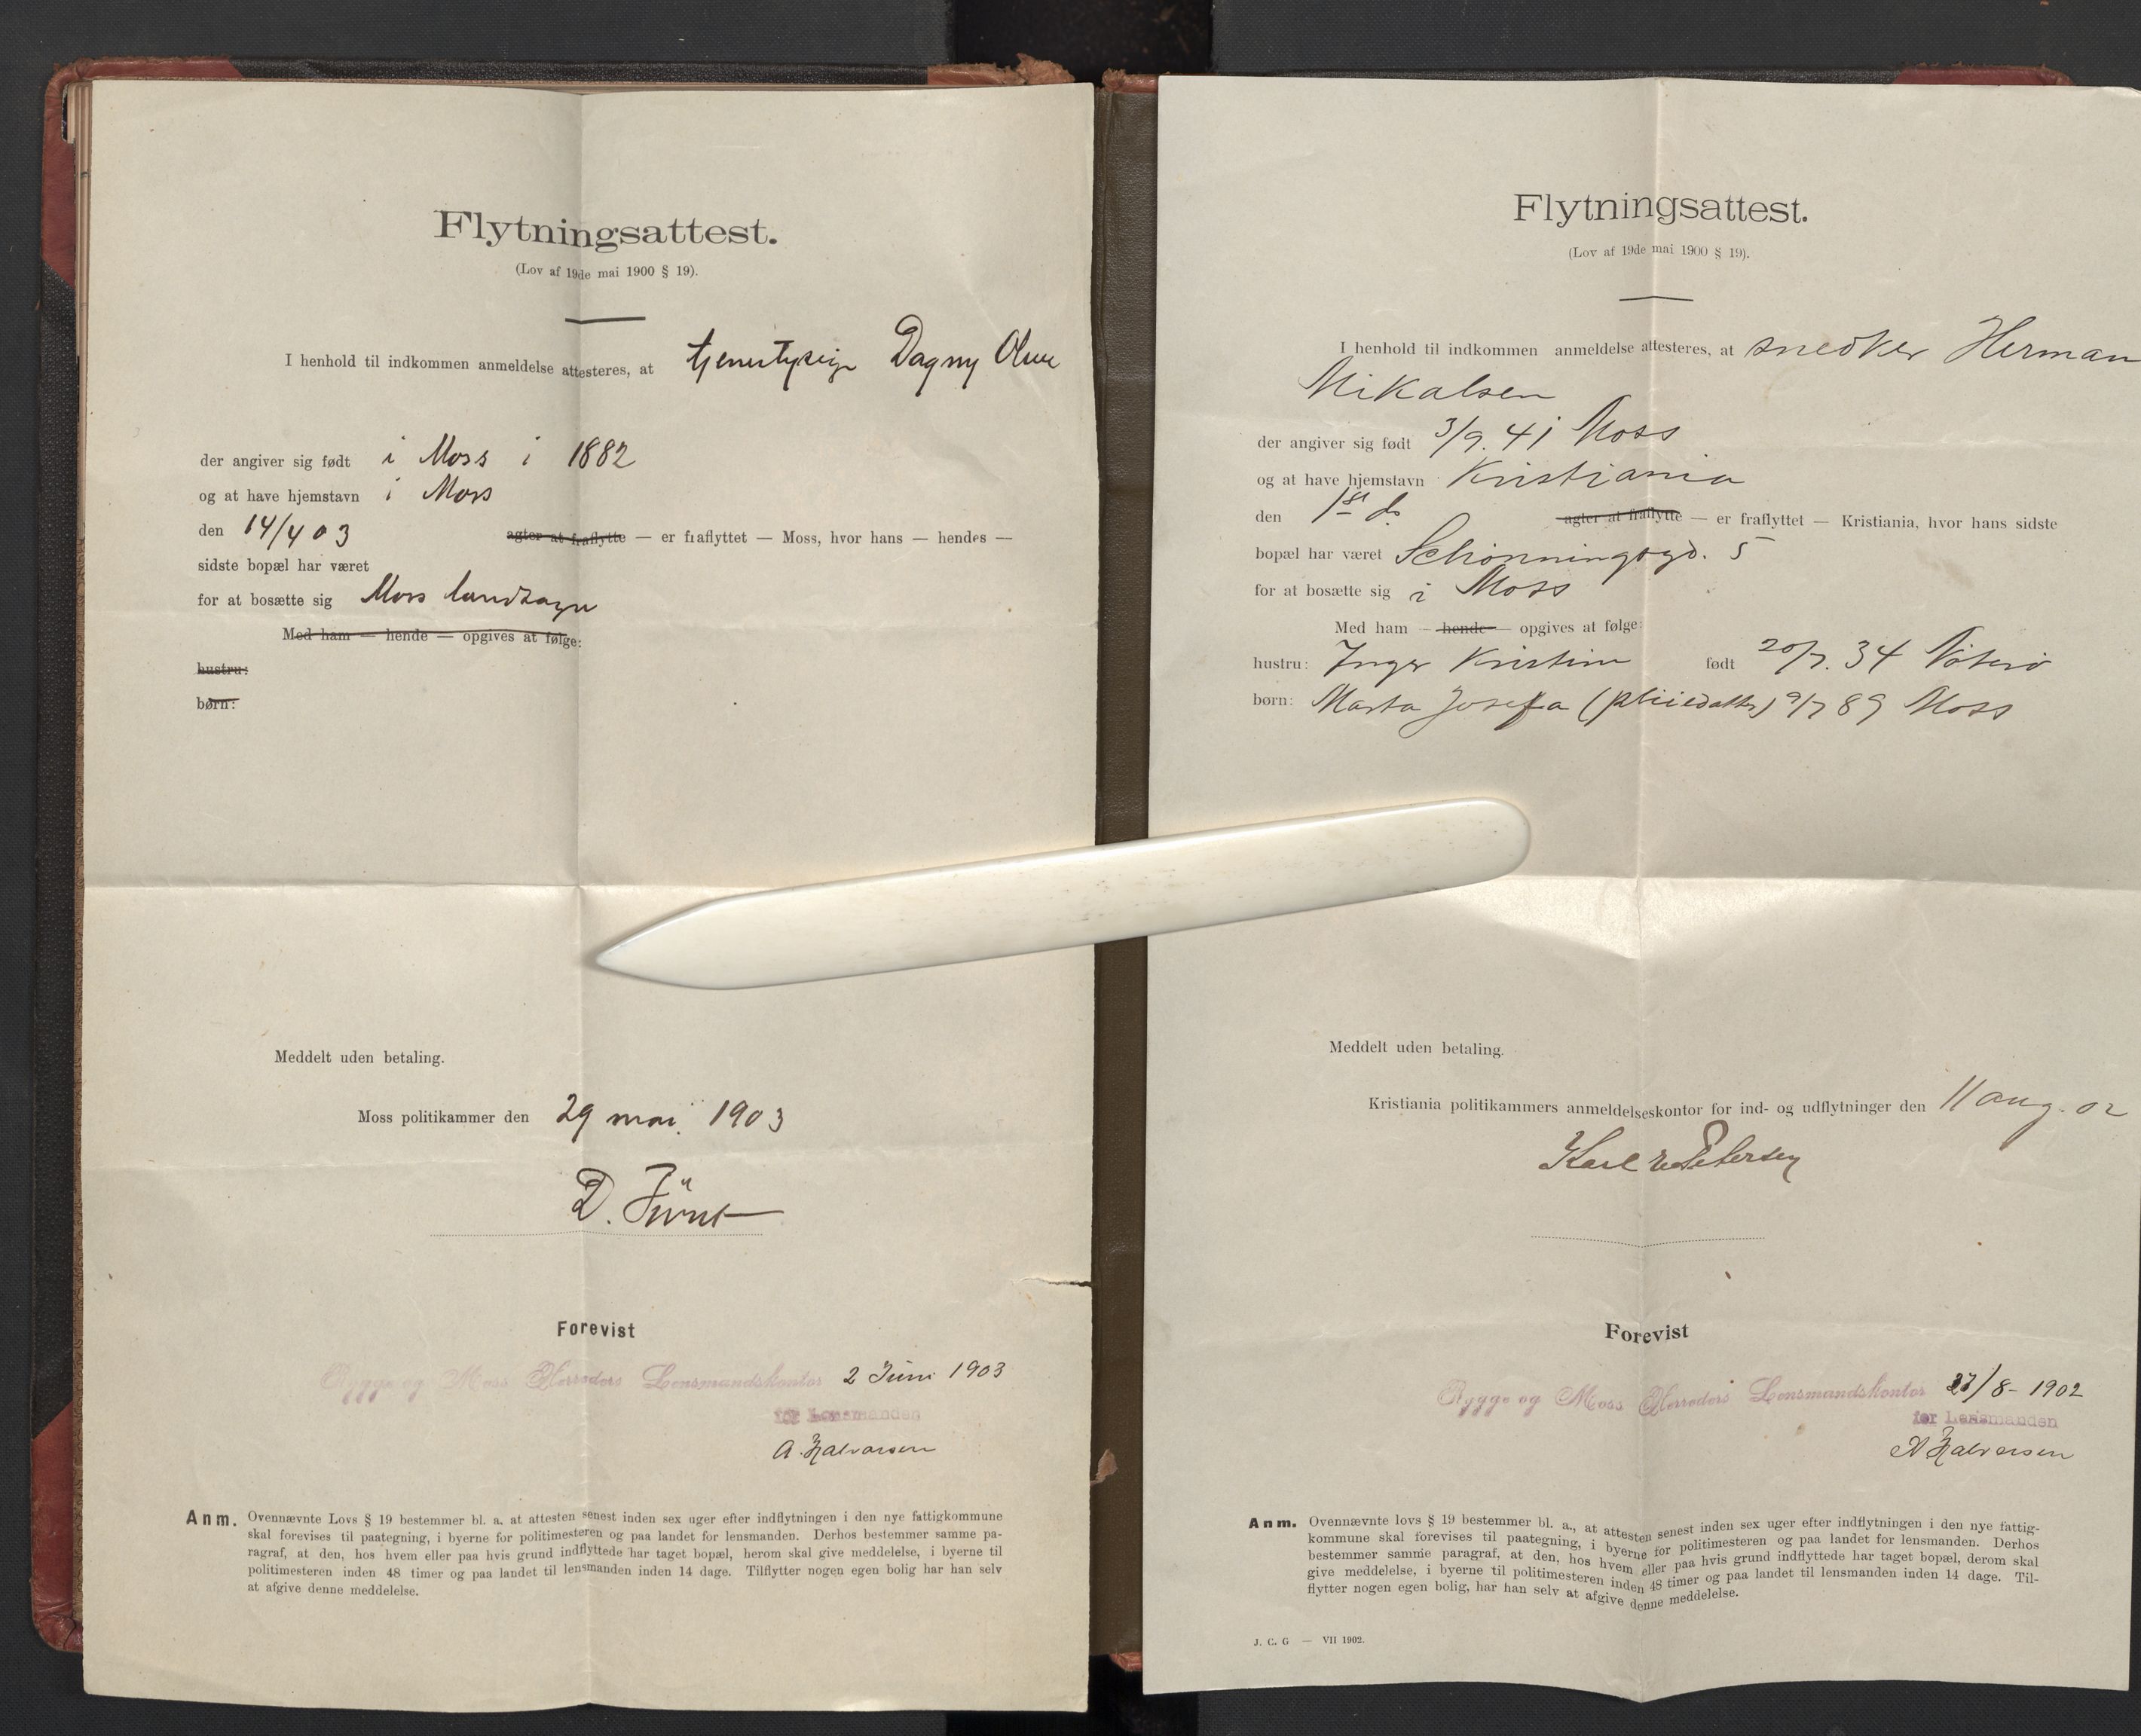 Flytningsattest.
(Lov af 19de mai 1900 § 19).
I henhold til indkommen anmeldelse attesteres, at tjenestepige Dagny Olsen
der angiver sig født i Moss i 1882
og at have hjemstavn i Moss
den 14/4 03 agter at fraflytte — er fraflyttet — Moss, hvor hans — hendes —
sidste bopæl har været
for at bosætte sig Moss landsogn
Med ham — hende — opgives at følge:
hustru:
børn:
Meddelt uden betaling.
Moss politikammer den 29 mai 1903
D. Fürst
Forevist
Rygge og Moss Herreders Lensmandskontor 2 Juni 1903
for Lensmanden
A. Halvorsen
Anm. Ovennævnte Lovs § 19 bestemmer bl. a. at attesten senest inden sex uger efter indflytningen i den nye fattigkommune
skal forevises til paategning, i byerne for politimesteren og paa landet for lensmanden. Derhos bestemmer samme pa-
ragraf, at den, hos hvem eller paa hvis grund indflyttede har taget bopæl, herom skal give meddelelse, i byerne til
politimesteren inden 48 timer og paa landet til lensmanden inden 14 dage. Tilflytter nogen egen bolig har han selv
at afgive denne meddelelse.
Flytningsattest.
(Lov af 19de mai 1900 § 19).
I henhold til indkommen anmeldelse attesteres, at snedker Herman
Mikalsen
der angiver sig født 3/9. 41 Moss
og at have hjemstavn Kristiania
den 1st ds. agter at fraflytte — er fraflyttet — Kristiania, hvor hans sidste
bopæl har været Schønningsgd. 5
for at bosætte sig i Moss
Med ham — hende — opgives at følge:
hustru: Inger Kristine født 20/7. 34 Nøterø
børn: Marta Josefa (pleiedatter) 9/7 89 Moss
Meddelt uden betaling.
Kristiania politikammers anmeldelseskontor for ind- og udflytninger den 11 aug. 02
Karl Petersen
Forevist
Rygge og Moss Herreders Lensmandskontor 27/8 - 1902
for Lensmanden
A Halvorsen
Anm. Ovennævnte lovs § 19 bestemmer bl. a., at attesten senest inden sex uger efter indflytningen i den nye fattig-
kommune skal forevises til paategning, i byerne for politimesteren og paa landet for lensmanden. Derhos
bestemmer samme paragraf, at den, hos hvem eller paa hvis grund indflyttede har taget bopæl, derom skal
give meddelelse, i byerne til politimesteren inden 48 timer og paa landet til lensmanden inden 14 dage. Til-
flytter nogen egen bolig, har han selv at afgive denne meddelelse.
J. C. G — VII 1902.